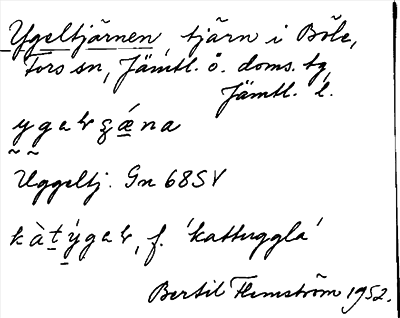 Ygeltjärnen tjärn i Böle,
Fors sn, Jämtl. ö. doms. tg,
Jämtl. l.
Uggeltj. Gn 68SV
f. 'kattuggla'
Bertil Flemström 1952.